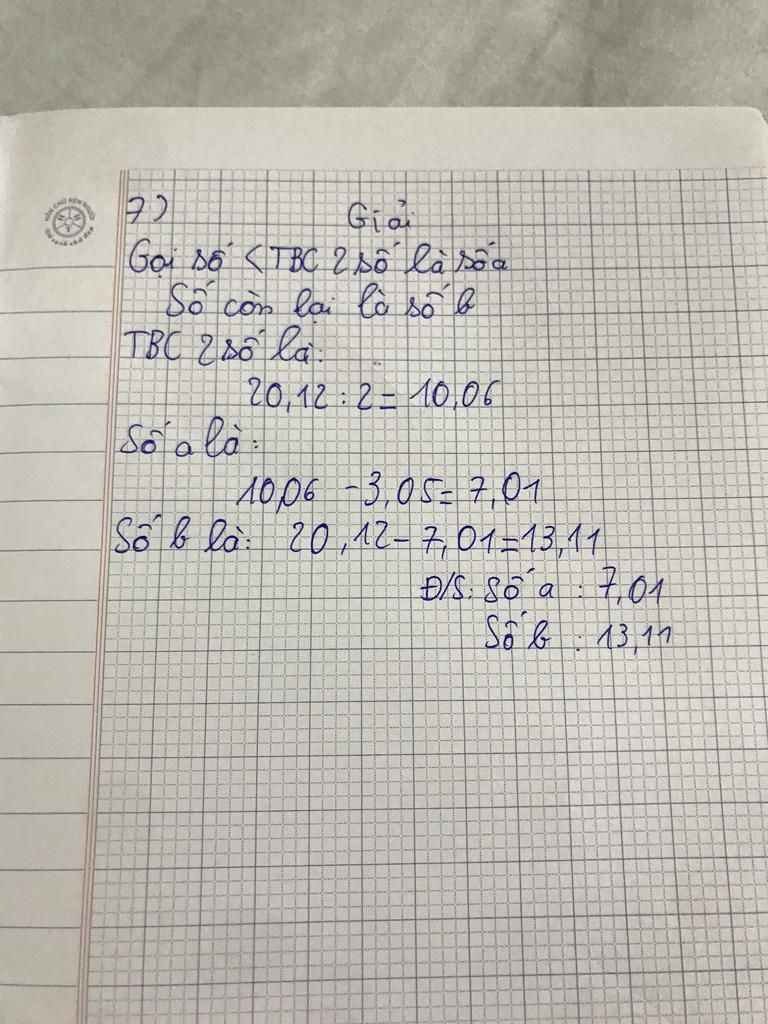 NẮN CHỮ RÈN NGƯỜI
7)
Giải
Gọi số < TBC 2 số là số a
Số còn lại là số b
TBC 2 số là:
20,12 : 2 = 10,06
Số a là:
10,06 - 3,05 = 7,01
Số b là: 20,12 - 7,01 = 13,11
Đ/S: Số a : 7,01
Số b : 13,11